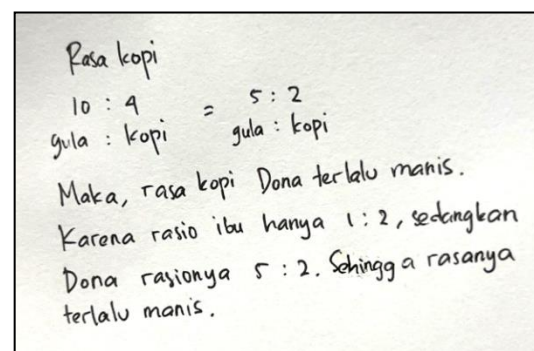 Rasa kopi
10 : 4 = 5 : 2
gula : kopi gula : kopi
Maka, rasa kopi Dona terlalu manis.
Karena rasio ibu hanya 1 : 2, sedangkan
Dona rasionya 5 : 2. Sehingga rasanya
terlalu manis.